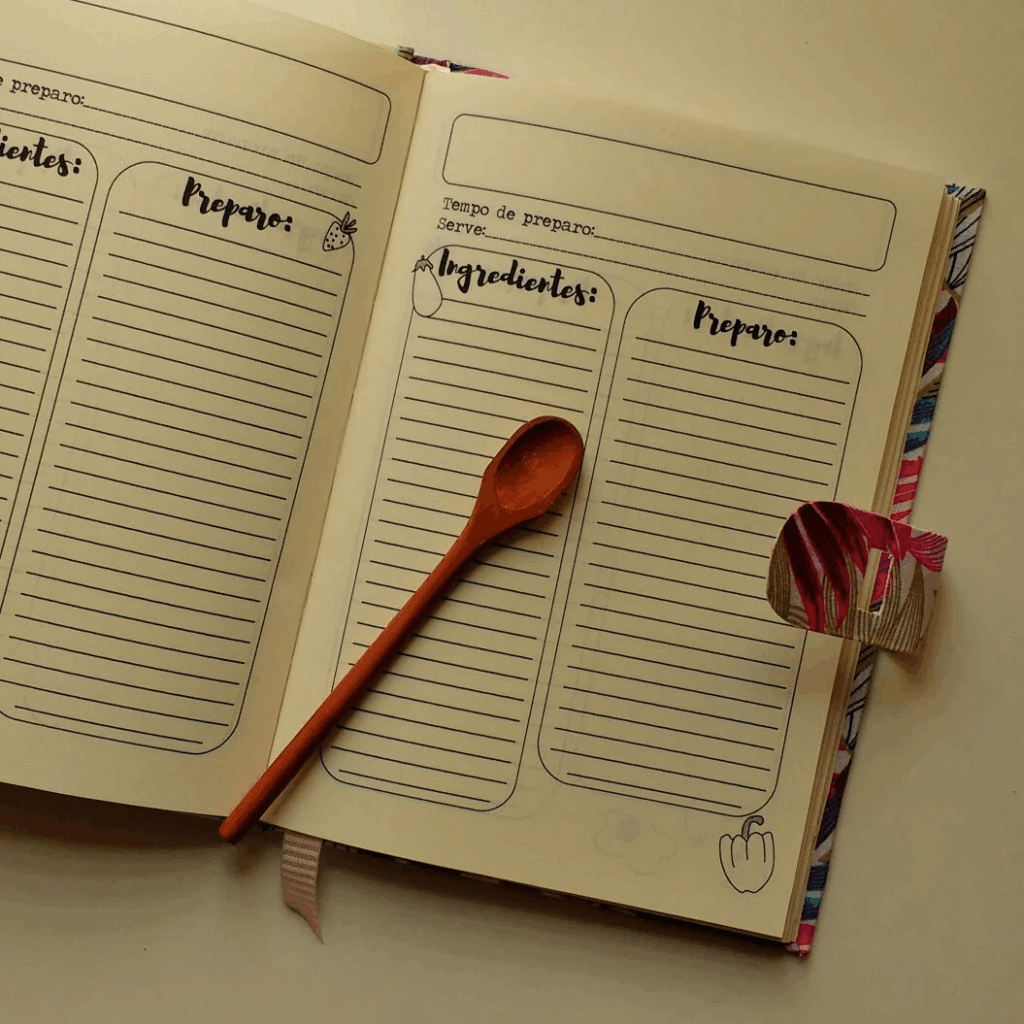 e preparo:
dientes:
Preparo:
Tempo de preparo:
Serve:
Ingredientes:
Preparo: